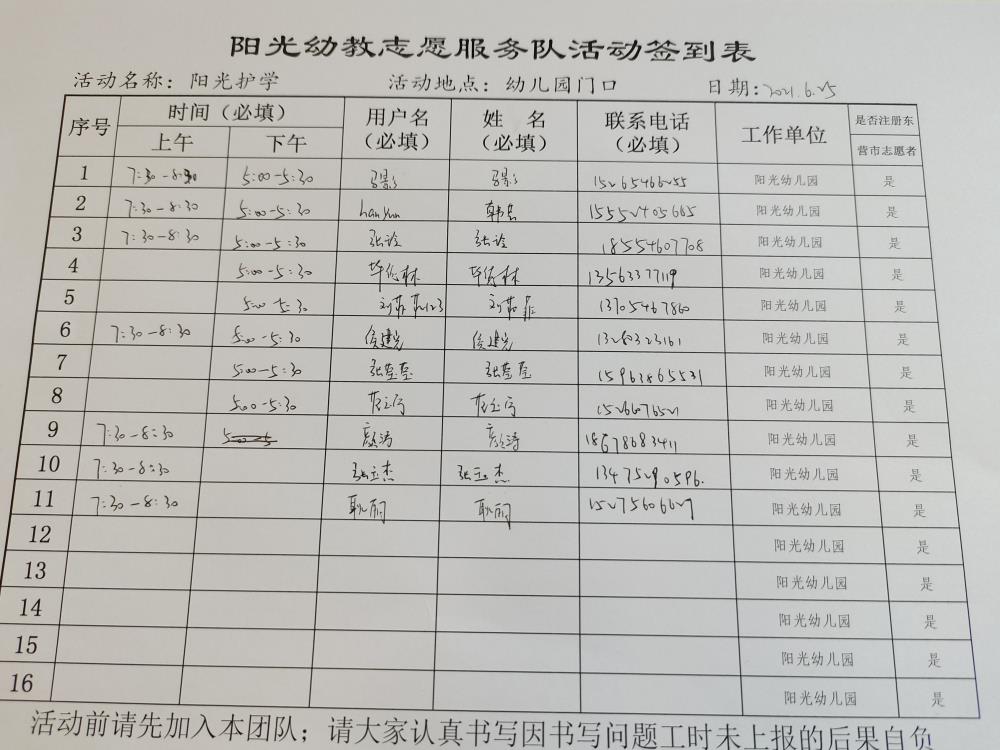 阳光幼教志愿服务队活动签到表
活动名称：阳光护学 活动地点：幼儿园门口 日期：2021.6.25
序号 时间（必填） 用户名（必填） 姓 名（必填） 联系电话（必填） 工作单位 是否注册东营市志愿者
上午 下午
1 7:30-8:30 5:00-5:30 阳光幼儿园 是
2 7:30-8:30 5:00-5:30 hanyun 阳光幼儿园 是
3 7:30-8:30 5:00-5:30 张诠 张诠 18554607708 阳光幼儿园 是
4 5:00-5:30 13563377119 阳光幼儿园 是
5 5:00 5:30 13705467860 阳光幼儿园 是
6 7:30-8:30 5:00-5:30 侯建光 侯建光 阳光幼儿园 是
7 5:00-5:30 张莹莹 张莹莹 15963865531 阳光幼儿园 是
8 5:00-5:30 阳光幼儿园 是
9 7:30-8:30 颜涛 颜涛 18678683411 阳光幼儿园 是
10 7:30-8:30 张立杰 张立杰 13475290596. 阳光幼儿园 是
11 7:30-8:30 耿丽 耿丽 15275606627 阳光幼儿园 是
12 阳光幼儿园 是
13 阳光幼儿园 是
14 阳光幼儿园 是
15 阳光幼儿园 是
16 阳光幼儿园 是
活动前请先加入本团队；请大家认真书写因书写问题工时未上报的后果自负